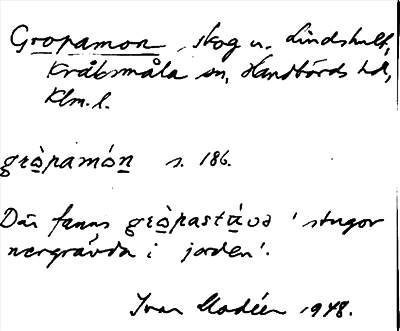 Gropamon, skog u. Lindshult,
Kråksmåla sn, Handbörds hd,
Klm. l.
gròpamón s. 186.
Där fanns gròpastúvə 'stugor
nergrävda i jorden'.
Ivar Modéer 1948.